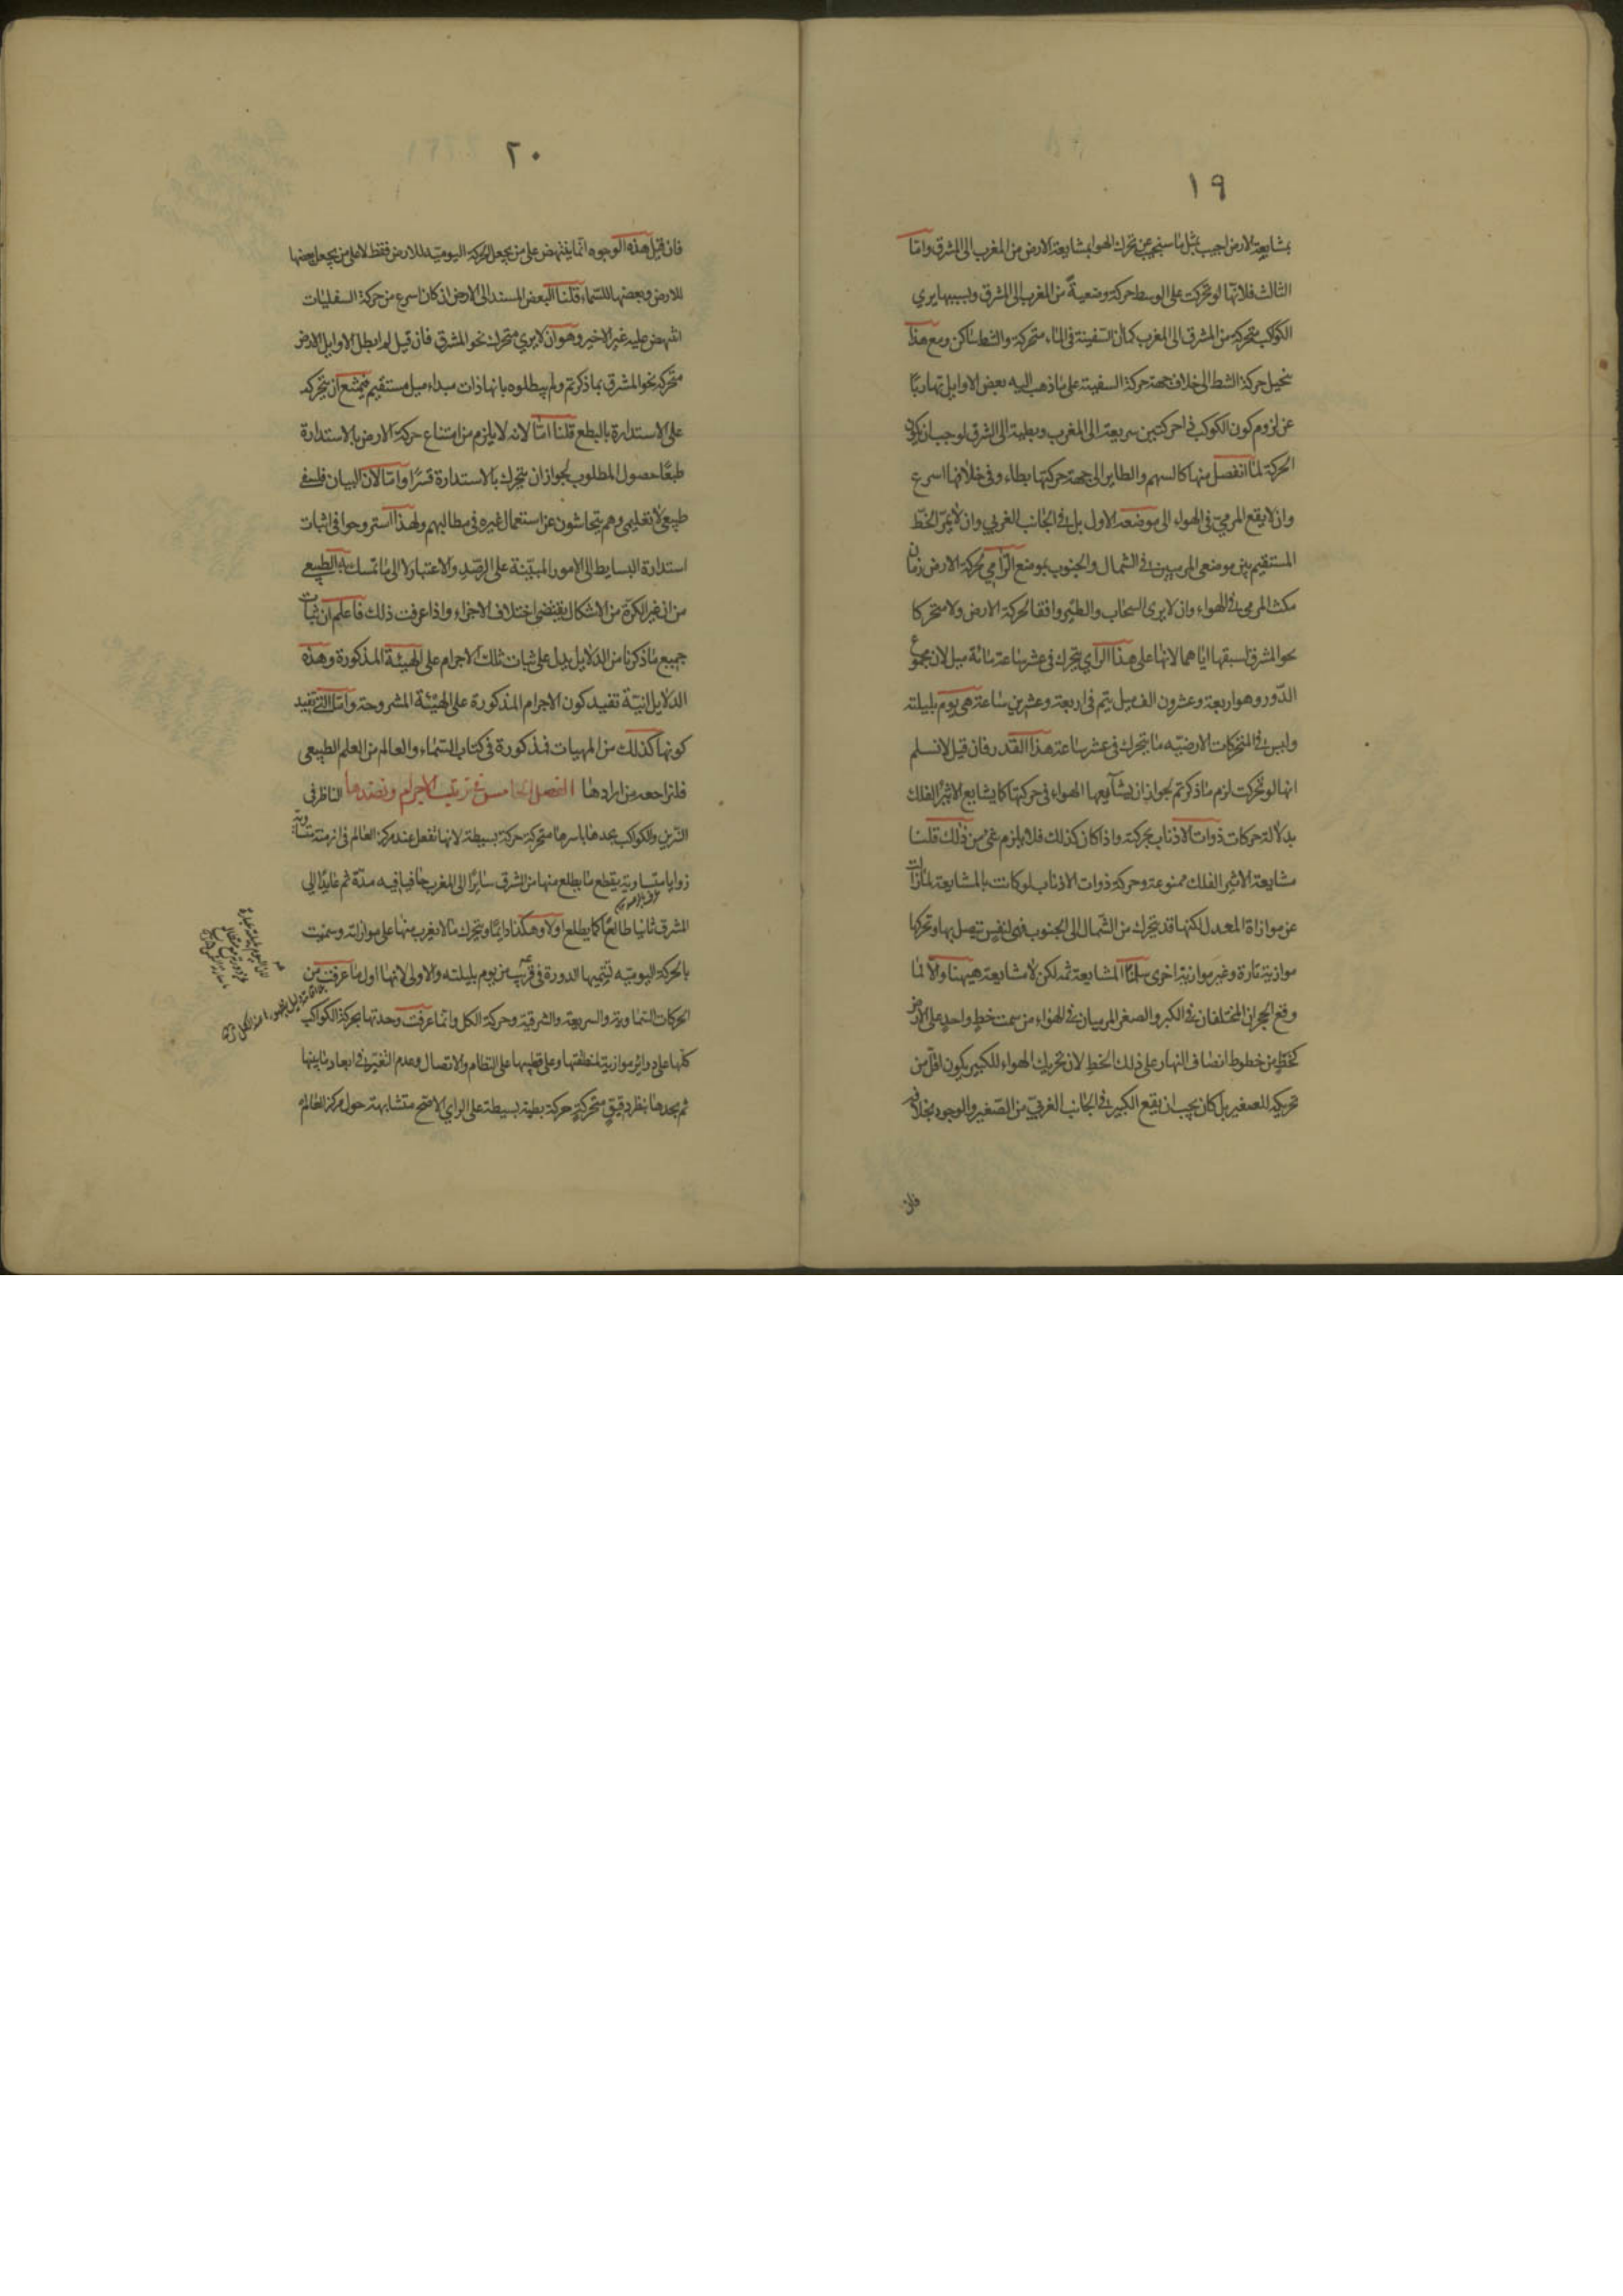 ١٩
بمشايعة الارض اجيب بمثل ما سنجيب عن تحرك الهوا بمشايعة الارض من المغرب الى المشرق واما
الثالث فلانها لو تحركت على الوسط حركة وضعية من المغرب الى المشرق وبسببها يرى
الكواكب متحركة من المشرق الى المغرب كما ان السفينة في الماء متحركة والشط ساكن ومع هذا
يتخيل حركة الشط الى خلاف جهة حركة السفينة على ما ذهب اليه بعض الاوايل تهاربا
عن لزوم كون الكوكب في احركتين سريعة الى المغرب وبطيئة الى الشرق لوجب ان يكون
الحركة لما انفصل منها كالسهم والطاير الى جهة حركتها ابطاء وفي خلافها اسرع
وان لا يقع المرمي في الهواء الى موضعه الاول بل في الجانب الغربي وان لا يمر الخط
المستقيم بين موضعي المرميين في الشمال والجنوب بموضع الرامي لحركة الارض زمان
مكث المرمي في الهواء وان لا يرى السحاب والطير وافقا لحركة الارض ولا متحركا
نحو المشرق لسبقها اياهما لانها على هذا الراي يتحرك في عشر ساعة مائة ميل لان مجموع
الدور وهو اربعة وعشرون الف ميل يتم في اربعة وعشرين ساعة هي يوم بليلته
وليس في المتحركات الارضيه ما يتحرك في عشر ساعة هذا القدر فان قيل لا نسلم
انها لو تحركت لزم ما ذكرتم لجواز ان يشايعها الهواء في حركتها كما يشايع الاثير الفلك
بدلالة حركات ذوات الاذناب بحركته واذا كان كذلك فلا يلزم شئ من ذلك قلنا
مشايعة الاثير الفلك ممنوعة وحركة ذوات الاذناب لو كانت بالمشايعة لما زالت
عن موازاة المعدل لكنها قد يتحرك من الشمال الى الجنوب فهي لنفس تتصل بها وتحركها
موازية تارة وغير موازية اخرى سلمنا المشايعة ثمه لكن لا مشايعة هيهنا والا لما
وقع الحجران المختلفان في الكبر والصغر المرميان في الهواء من سمت خط واحد على الارض
كخط من خطوط انصاف النهار على ذلك الخط لان تحريك الهواء للكبير يكون اقل من
تحريكه للصغير بل كان يجب ان يقع الكبير في الجانب الغربي من الصغير والوجود بخلافه
فان
٢٠
فان قيل هذه الوجوه انما ينتهض على من يجعل الحركة اليومية للارض فقط لا على من يجعل بعضها
للارض وبعضها للسماء قلنا البعض المسند الى الارض ان كان اسرع من حركة السفليات
انتهض عليه غير الاخير وهو ان لا يرى متحرك نحو المشرق فان قيل لم ابطل الاوايل الارض
متحركة نحو المشرق بما ذكرتم ولم يبطلوه بانها ذات مبداء ميل مستقيم فيمتنع ان يتحركه
على الاستدارة بالطبع قلنا اما لانه لا يلزم من امتناع حركة الارض بالاستدارة
طبعا حصول المطلوب لجواز ان يتحرك بالاستدارة قسرا واما لان البيان فلسفي
طبيعي لا تعليمي وهم يتحاشون عن استعمال غيره في مطالبهم ولهذا استروحوا في اثبات
استدارة البسايط الى الامور المبنية على الرصد والاعتبار لا الى ما تمسك به الطبيعي
من ان غير الكرة من الاشكال يقتضي اختلاف الاجزاء واذا عرفت ذلك فاعلم ان ثبات
جميع ما ذكرنا من الدلايل يدل على ثبات تلك الاجرام على الهيئة المذكورة وهذه
الدلايل انية تفيد كون الاجرام المذكورة على الهيئة المشروحة واما التي تفيد
كونها كذلك من المهيات فمذكورة في كتاب السماء والعالم من العلم الطبيعي
فليراجعه من ارادها الفصل الخامس في ترتيب الاجرام ونضدها الناظر في
النيرين والكواكب يجدها باسرها متحركة حركة بسيطة لانها تفعل عند مركز العالم في ازمنة متساوية
زوايا متساوية يقطع ما يطلع منها من المشرق سايرا الى المغرب خافيا فيه مدة ثم عايدا الى
المشرق ثانيا طالعا كما يطلع اولا وهكذا دايما ويتحرك ما لا يغرب منها على موازاته وسميت
بالحركة اليومية لتتميمها الدورة في قريب من يوم بليلته والاولى لانها اول ما عرفت من
الحركات السماوية والسريعة والشرقية وحركة الكل وانما عرفت وحدتها بحركة الكواكب
كلها على دواير موازية لمنطقتها وعلى قطبيها على النظام والاتصال وعدم التغير في ابعاد ما بينها
ثم يجدها بنظر دقيق متحركة حركة بطيئة بسيطة على الراي الاصح متشابهة حول مركز العالم